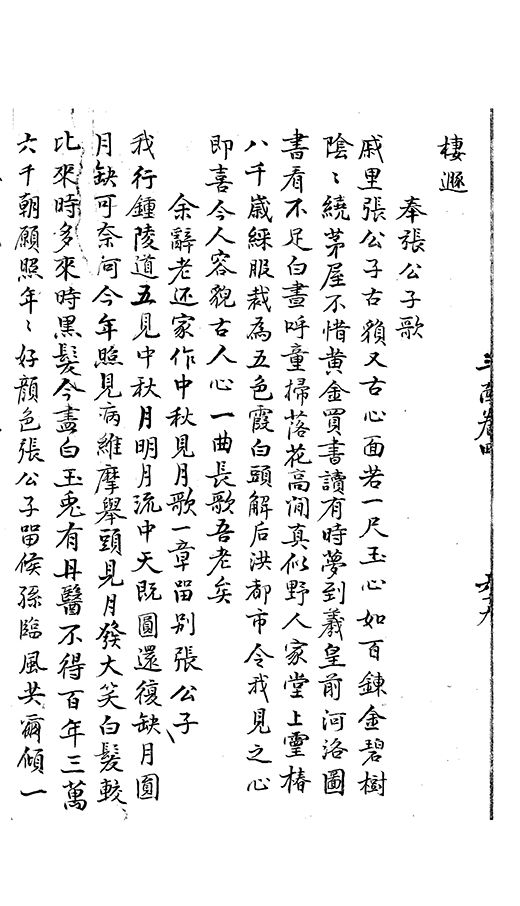 棲遯
奉張公子歌
戚里張公子古䫉又古心面若一尺玉心如百鍊金碧樹
陰〻繞茅屋不惜黄金買書讀有時夢到羲皇前河洛圖
書看不足白晝呼童掃落花高閒真似野人家堂上靈椿
八千嵗綵服裁為五色霞白頭解后洪都市令我見之心
即喜今人容貌古人心一曲長歌吾老矣
余辭老还家作中秋見月歌一章畱别張公子
我行鍾陵道五見中秋月明月流中天既圓還復缺月圓
月缺可奈何今年照見病維摩舉頭見月發大笑白髮較
比來時多來時黑髮今盡白玉兎有丹醫不得百年三萬
六千朝願照年〻好顔色張公子畱候孫臨風共爾傾一